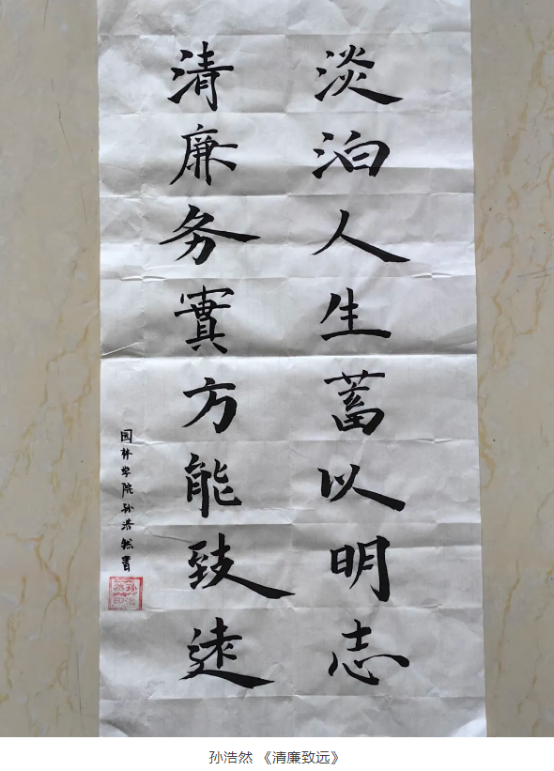 淡泊人生蓄以明志
清廉务實方能致逺
园林学院孙浩然書
孙浩然 《清廉致远》